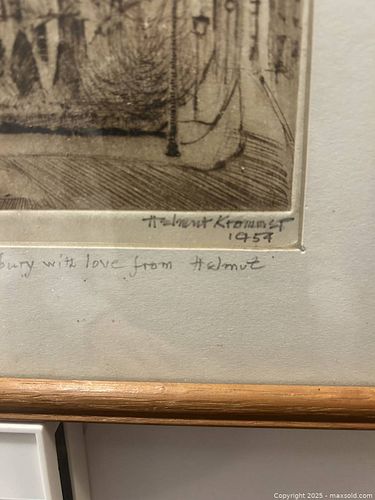 Helmut Krommer
1959
bury with love from Helmut
Copyright 2025 - maxsold.com